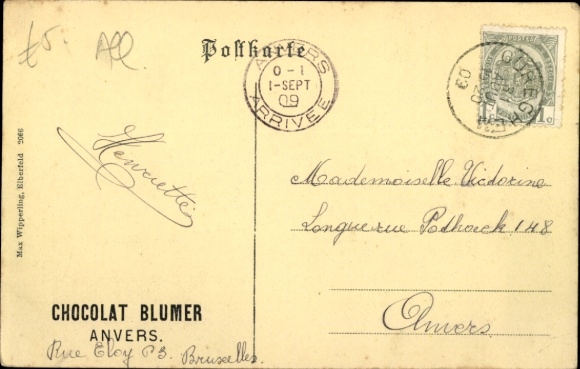 Postkarte
ANVERS
0-1
1-SEPT
09
ARRIVÉE
CUREGHEM
POSTES
Henriette
Mademoiselle Victorine
Longue rue Pothoeck 148
Anvers
Max Wipperling, Elberfeld 2066
CHOCOLAT BLUMER
ANVERS.
Rue Eloy 83. Bruxelles.